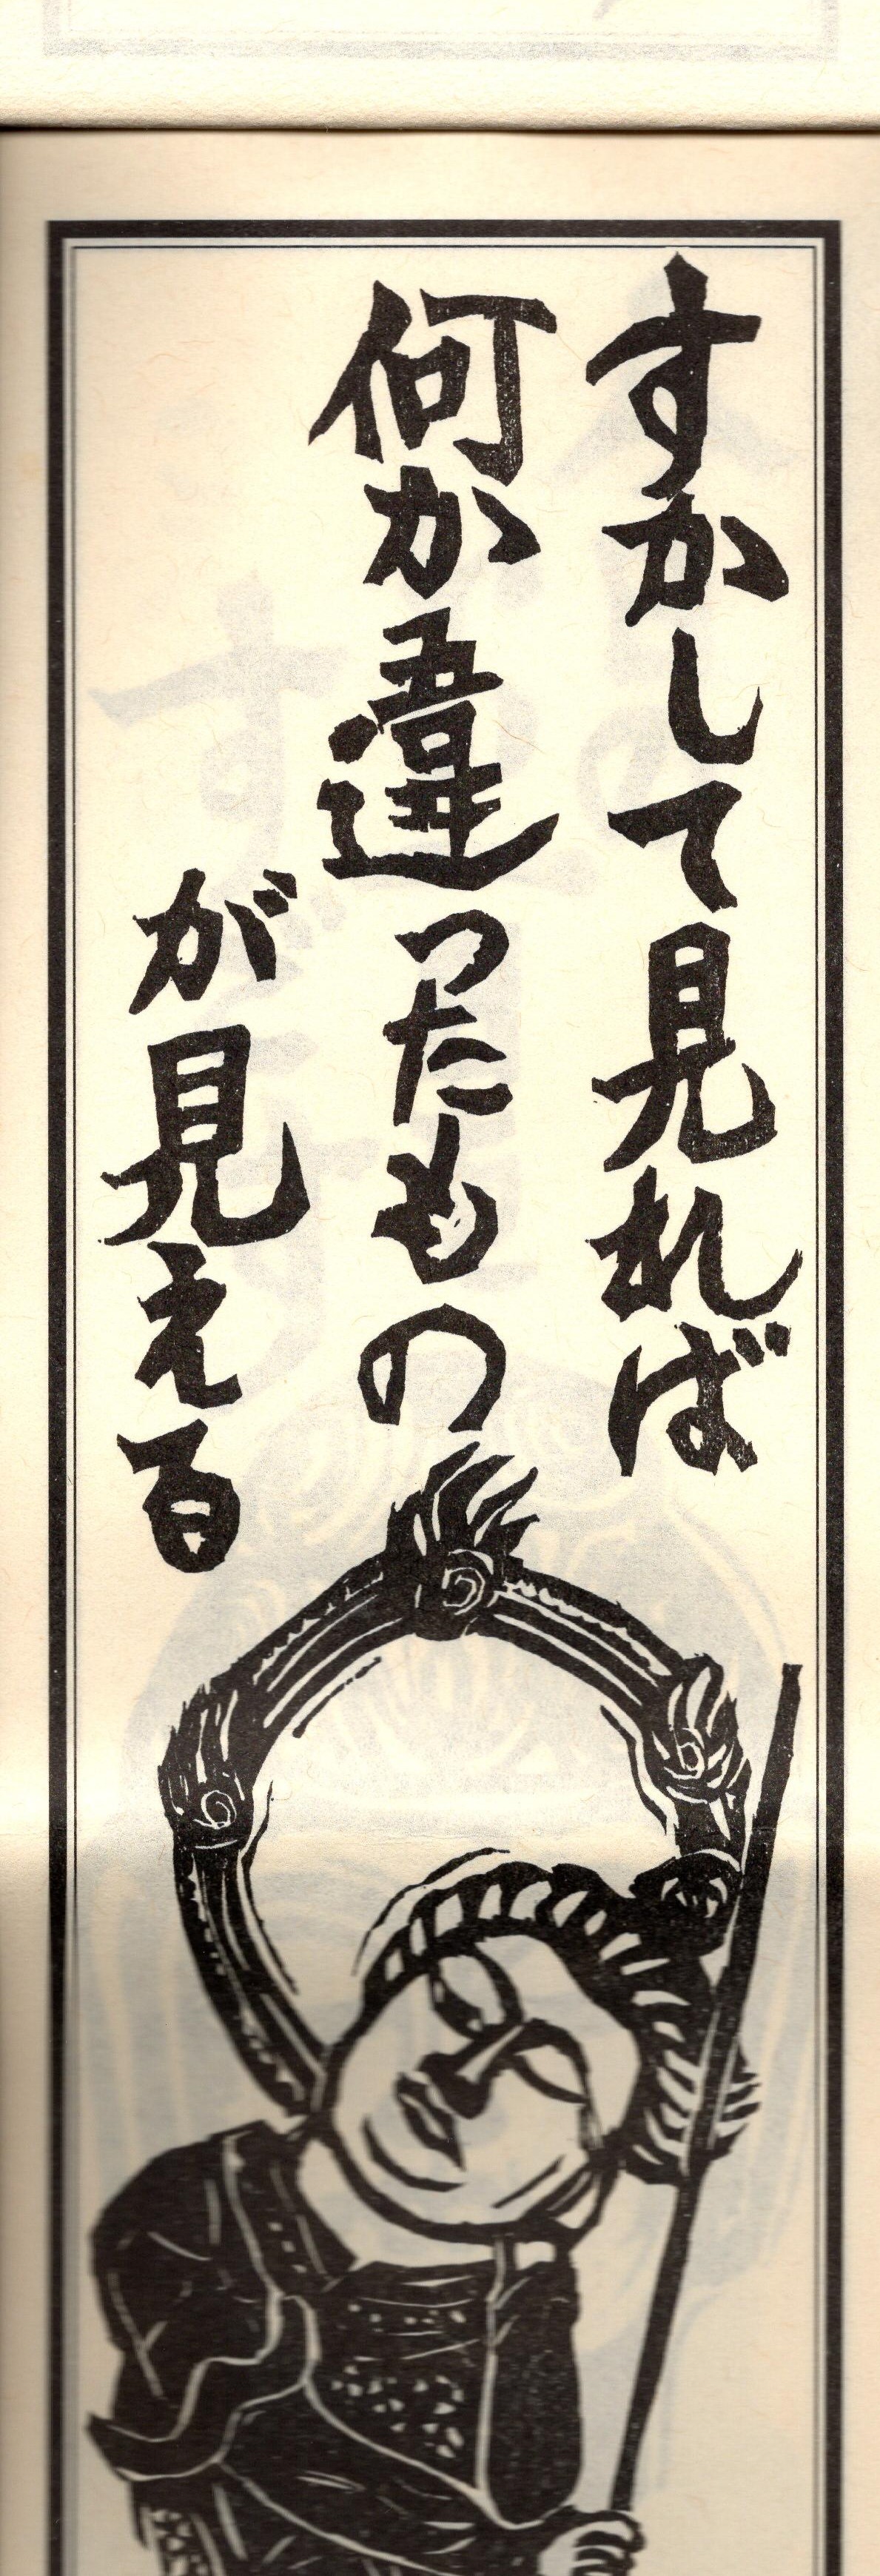 すかして見れば
何か違ったもの
が見える